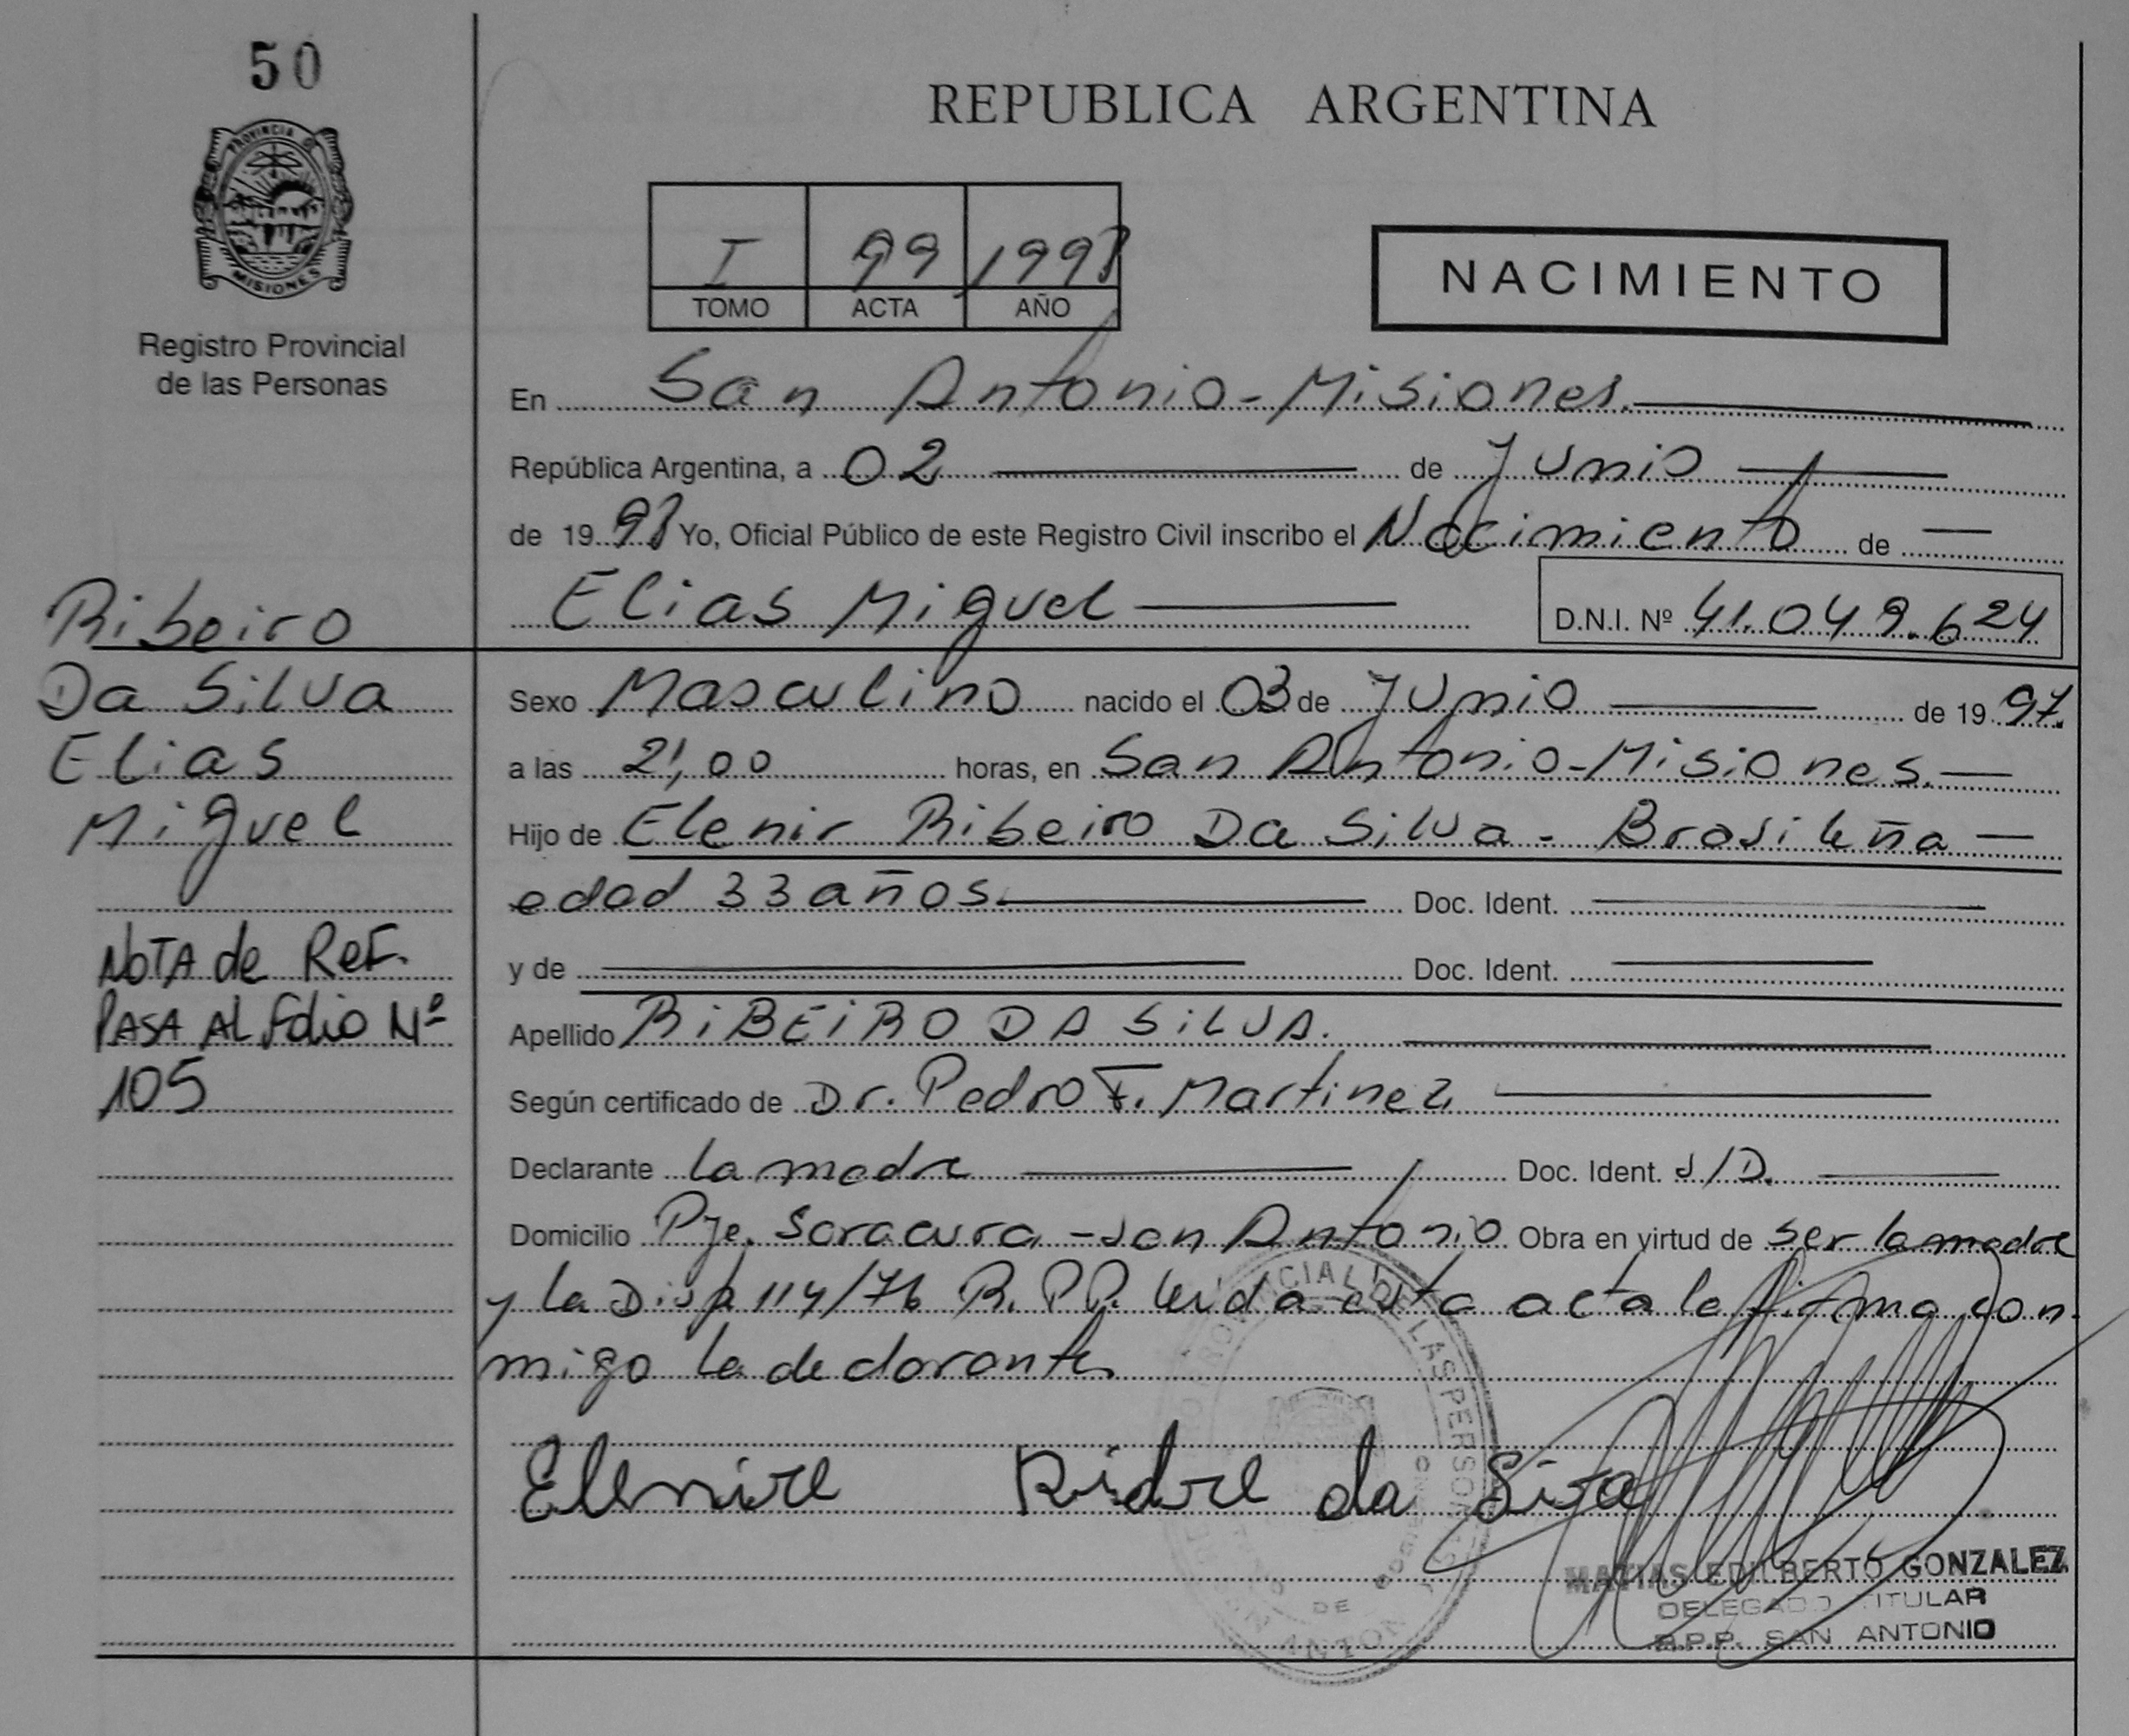 50
PROVINCIA DE
MISIONES
Registro Provincial
de las Personas
REPUBLICA ARGENTINA
I 99 1998
TOMO ACTA AÑO
NACIMIENTO
En San Antonio-Misiones.
República Argentina, a 02 de Junio
de 19 98 Yo, Oficial Público de este Registro Civil inscribo el Nacimiento de
Elias Miguel D.N.I. Nº 41.049.624
Sexo Masculino nacido el 03 de Junio de 19 97.
a las 21,00 horas, en San Antonio-Misiones.
Hijo de Elenir Ribeiro Da Silva - Brasileña
edad 33 años. Doc. Ident.
y de Doc. Ident.
Apellido RiBEiRO DA SiLVA.
Según certificado de Dr. Pedro F. Martinez
Declarante la madre Doc. Ident. S/D.
Domicilio Pje. Saracura - San Antonio Obra en virtud de ser la madre
y la Disp 114/76 R.P.P. leida esta acta la firma con-
migo la declarante
Elenire Ridre da Siva
MATIAS EDILBERTO GONZALEZ
DELEGADO TITULAR
R.P.P. SAN ANTONIO
Ribeiro
Da Silva
Elias
Miguel
NOTA de REF.
PASA AL folio Nº
105